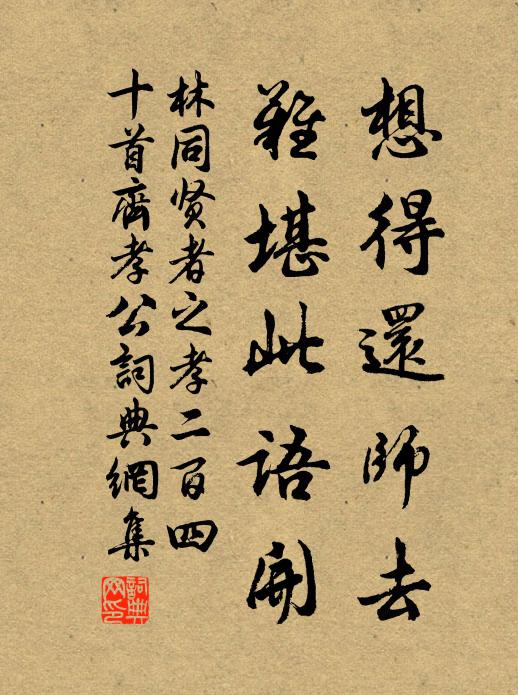 想得還師去
難堪此語開
林同贤者之孝二百四
十首齊孝公詞典網集
詞典网印